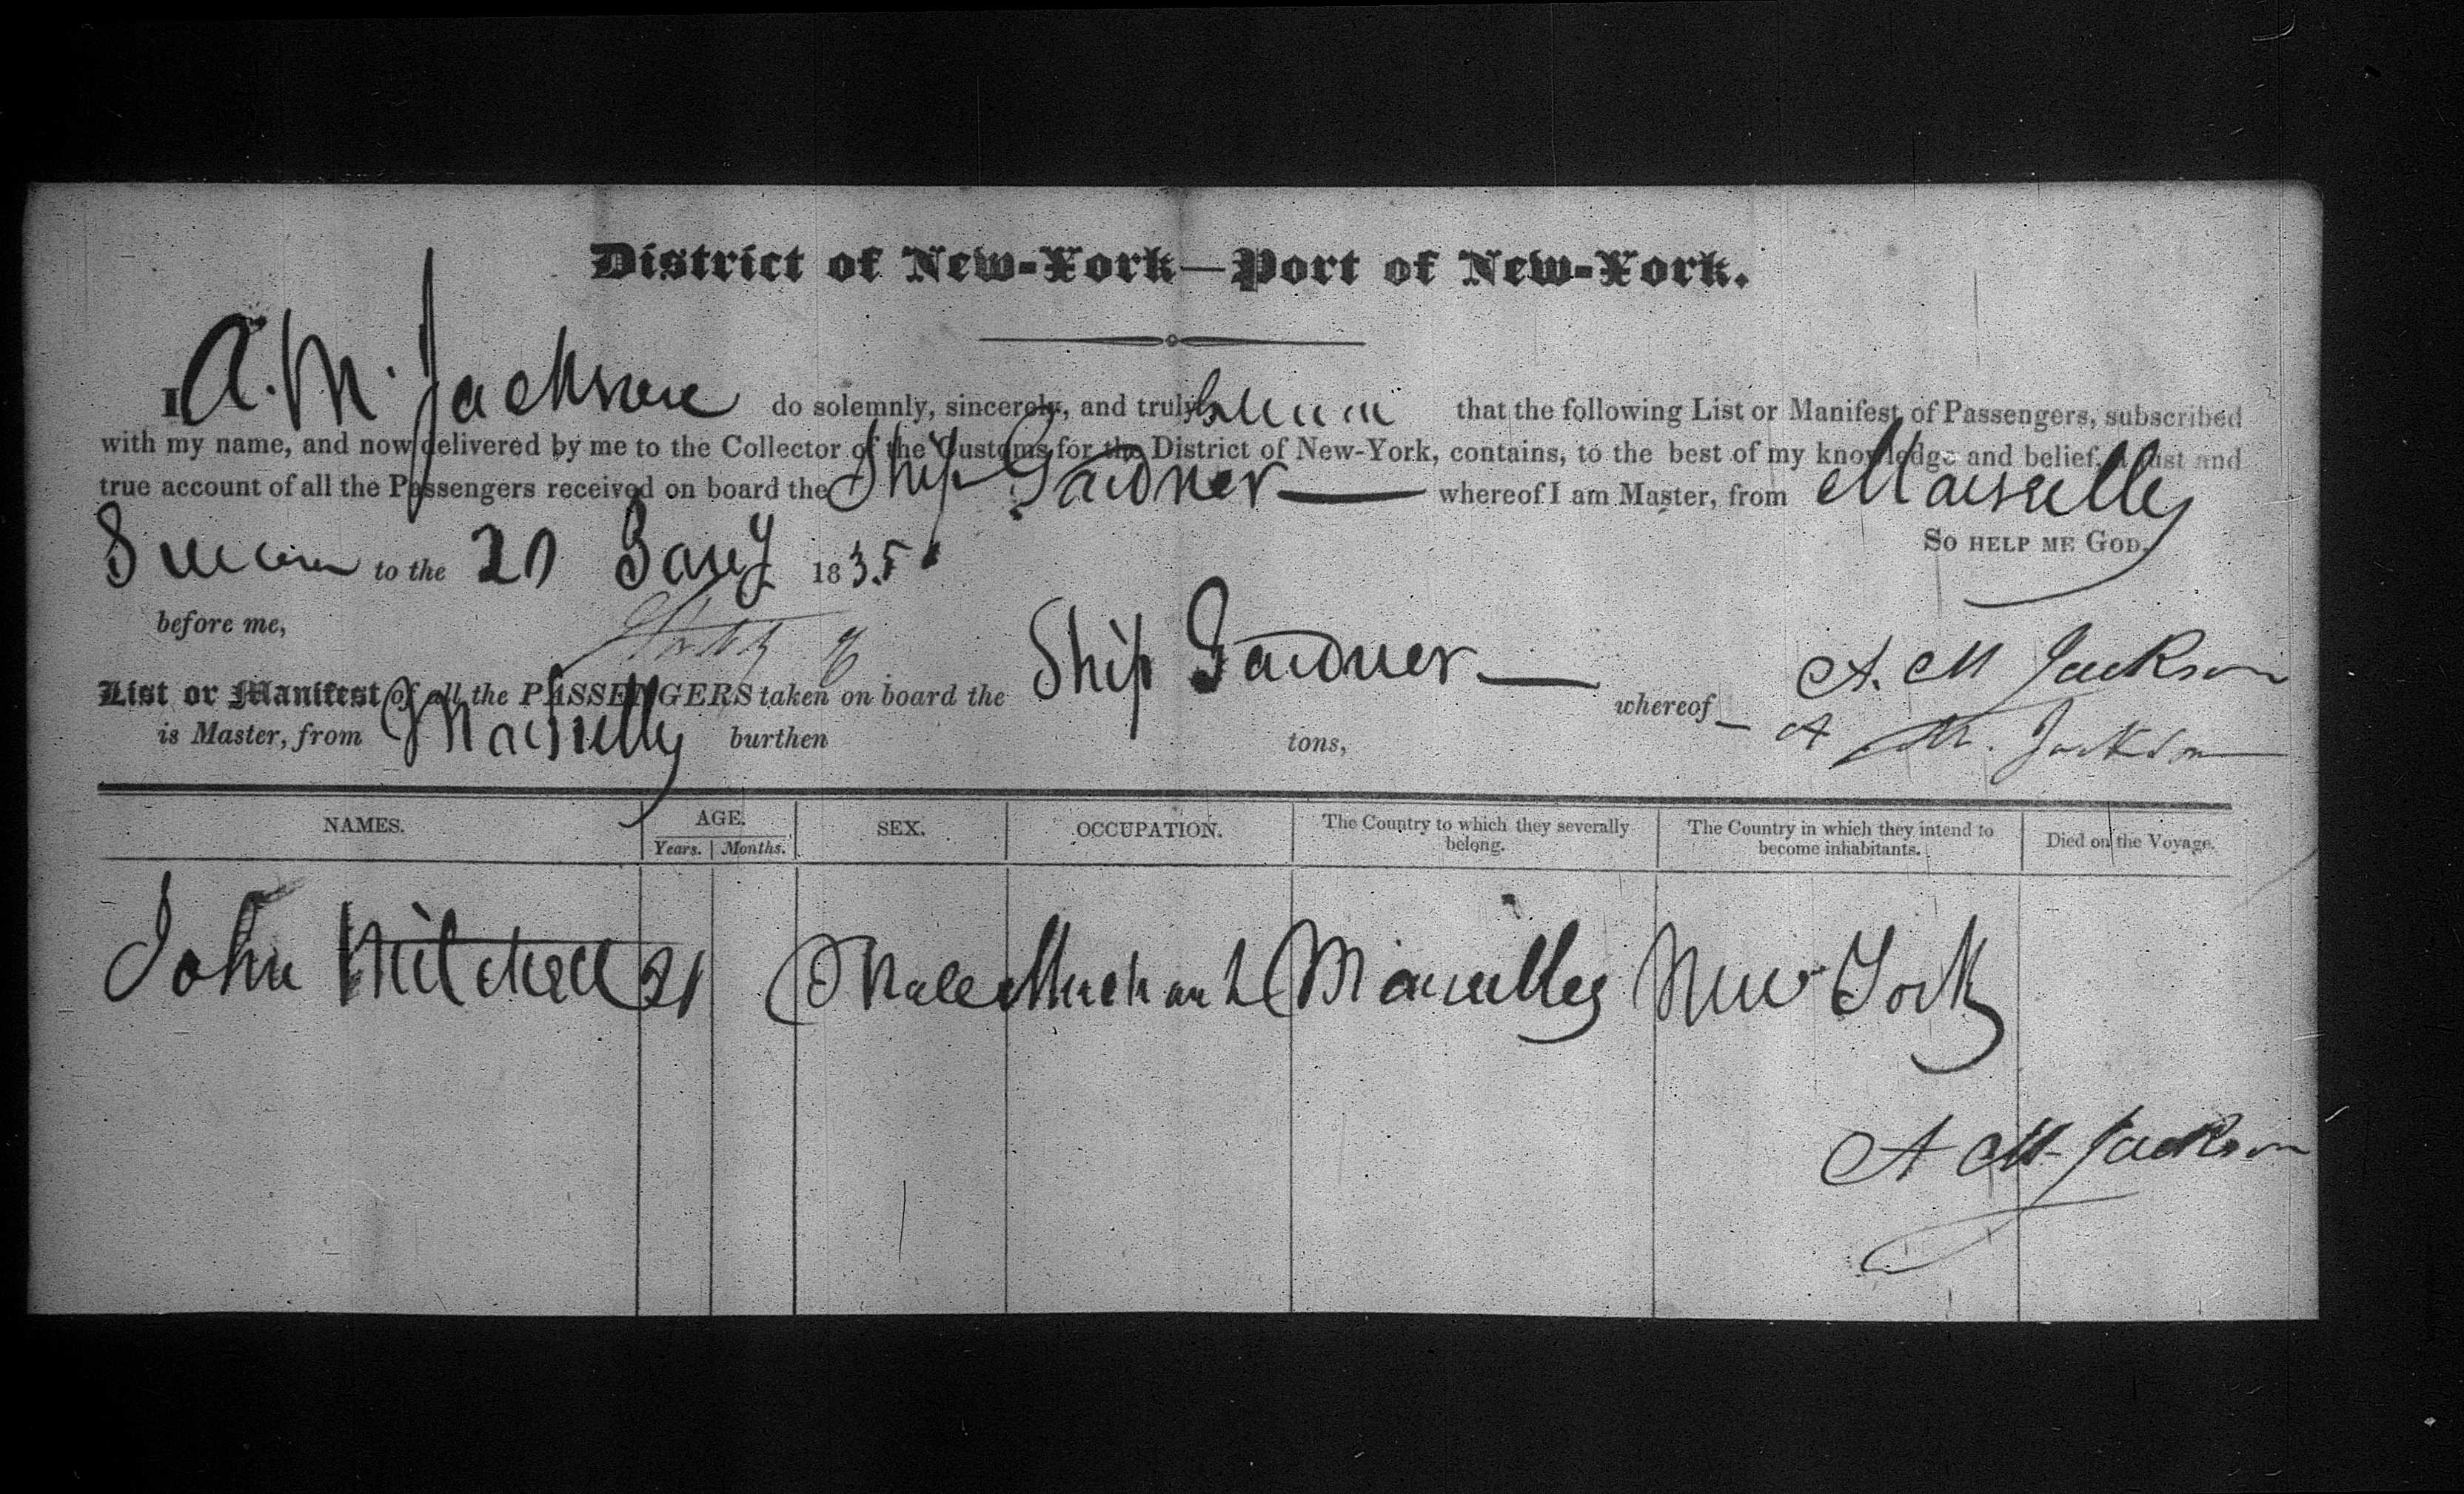 District of New-York—Port of New-York.
I A. M. Jackson do solemnly, sincerely, and truly swear that the following List or Manifest of Passengers, subscribed
with my name, and now delivered by me to the Collector of the Customs for the District of New-York, contains, to the best of my knowledge and belief, a just and
true account of all the Passengers received on board the Ship Gardner — whereof I am Master, from Marseilles
So help me God.
Sworn to the 20 Jany 1835
before me,
List or Manifest of all the PASSENGERS taken on board the Ship Gardner — whereof A. M Jackson
is Master, from Marseilles burthen tons, A M. Jackson
NAMES. AGE. SEX. OCCUPATION. The Country to which they severally belong. The Country in which they intend to become inhabitants. Died on the Voyage.
Years. Months.
John Mitchell 21 Male Merchant Marseilles New York
A M Jackson